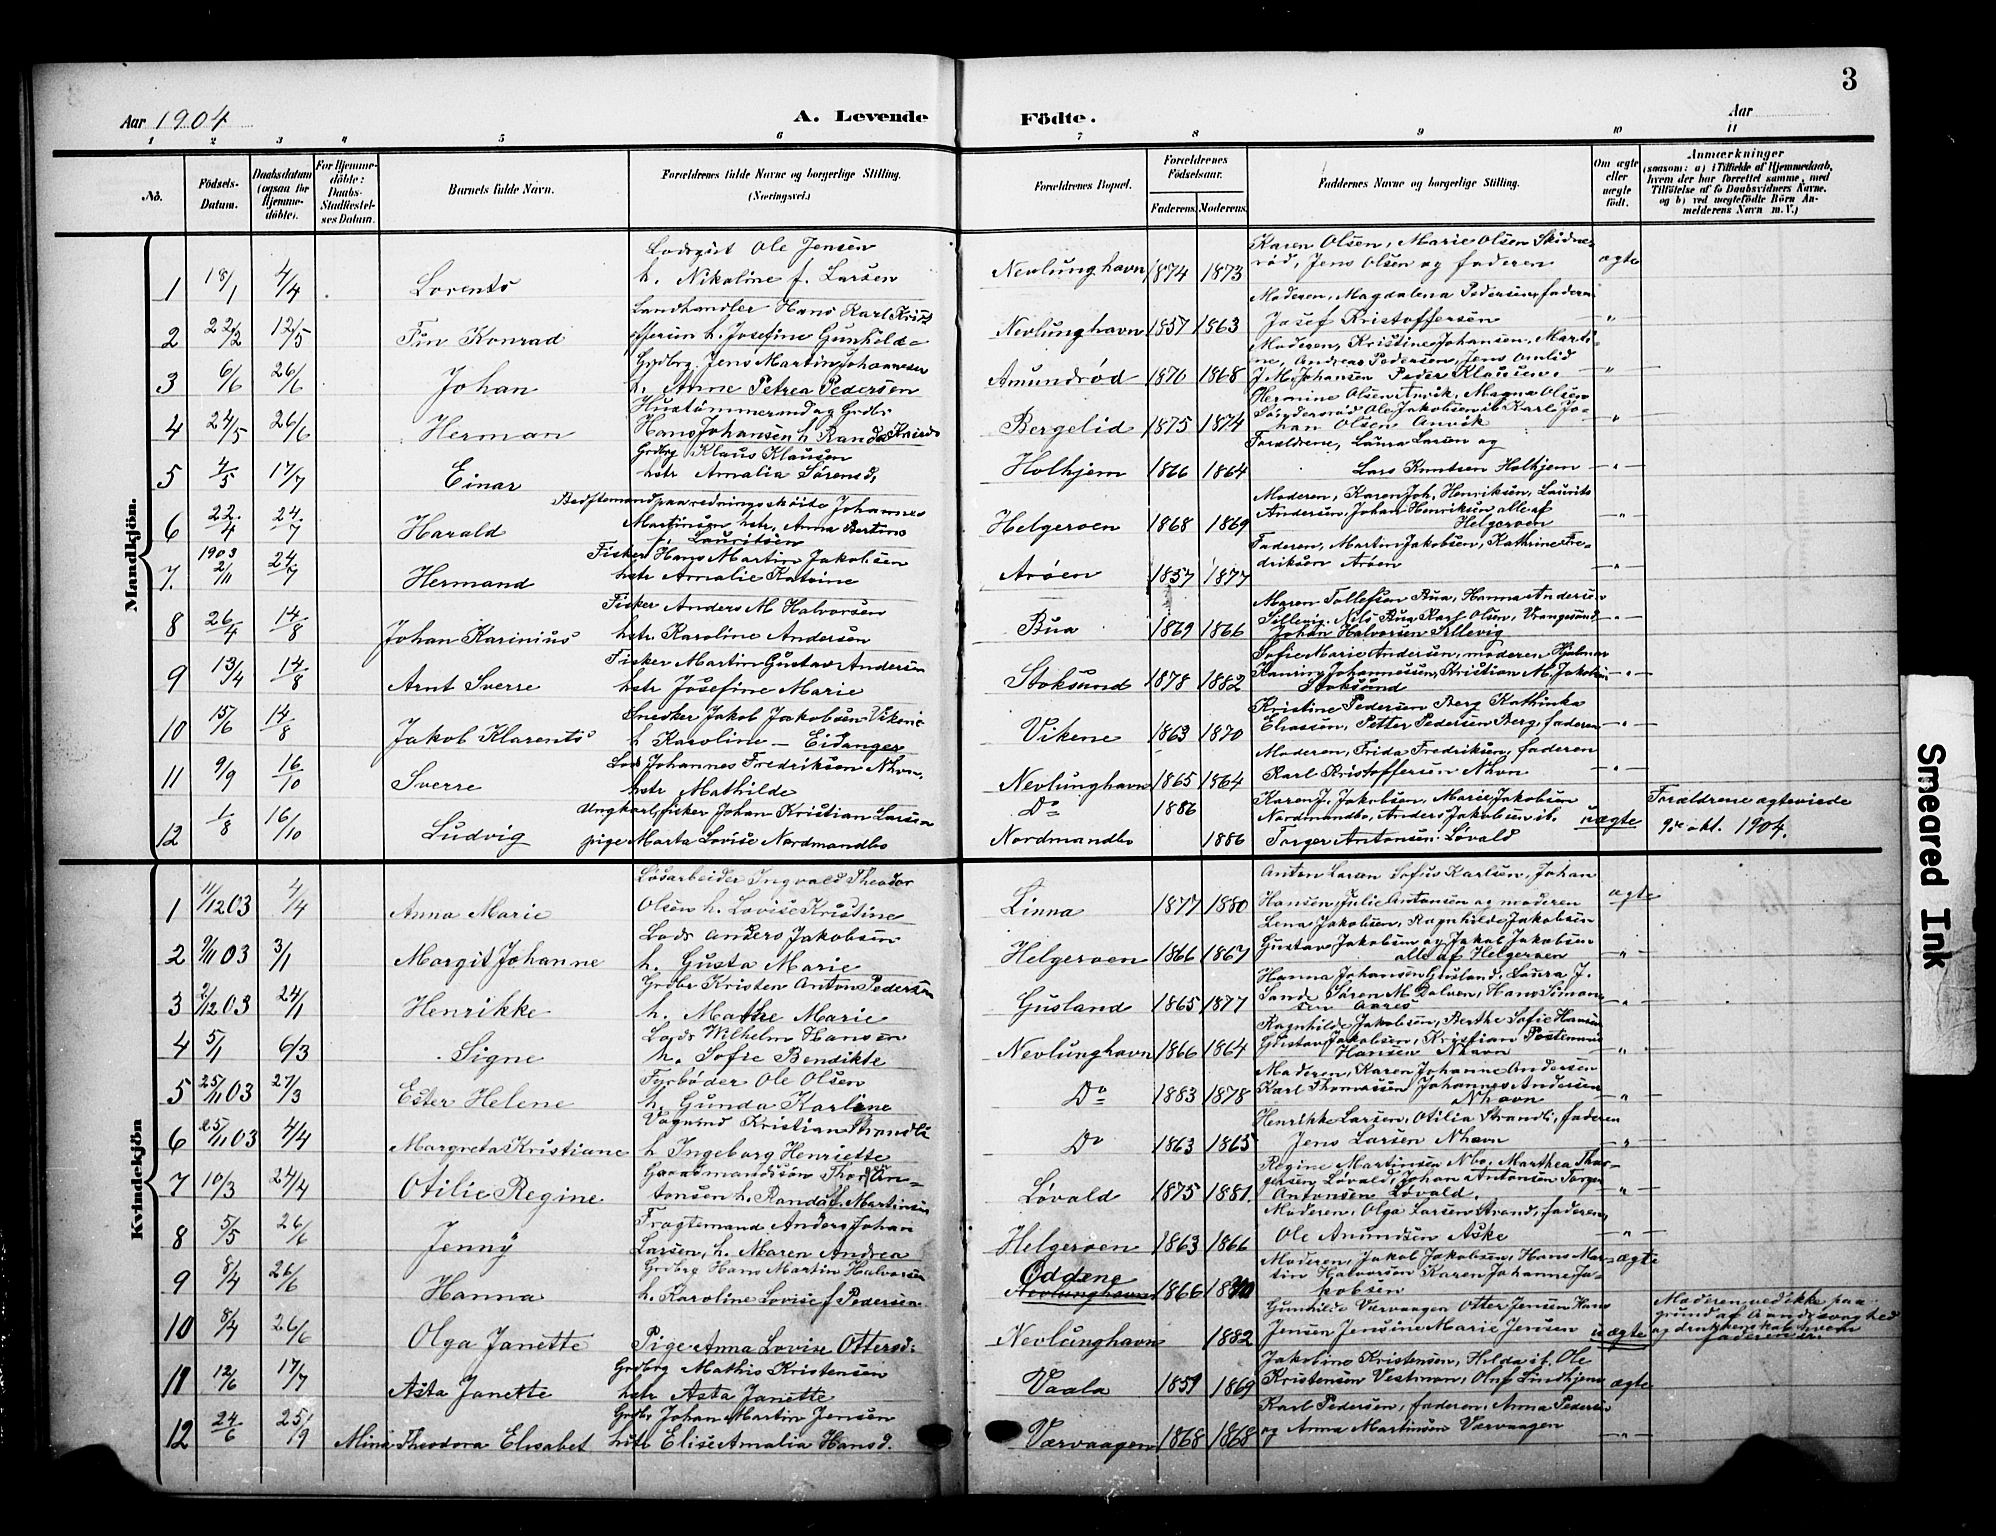 3
Aar 1904
A. Levende Födte.
Aar
1 2 3 4 5 6 7 8 9 10 11
No.
Födsels-Datum.
Daabsdatum (ogsaa for Hjemme-döbte).
For Hjemme-döbte: Daabs-Stadfæstel-ses Datum.
Barnets fulde Navn.
Forældrenes fulde Navne og borgerlige Stilling. (Næringsvei.)
Forældrenes Bopæl.
Forældrenes Födselsaar.
Faderens. Moderens.
Faddernes Navne og borgerlige Stilling.
Om ægte eller uægte födt.
Anmærkninger (saasom: a) i Tilfælde af Hjemmedaab, hvem der har forrettet samme, med Tilföielse af to Daabsvidners Navne. og b) ved uægtefödte Börn Anmelderens Navn m. V.)
Mandkjön.
1 18/1 4/4 Lorents
Lodsgut Ole Jensen
h. Nikoline f. Larsen
Nevlunghavn 1874 1873
Karen Olsen, Marie Olsen Skidne-
rød, Jens Olsen og faderen
ægte
2 22/2 12/5 Fin Konrad
Landhandler Hans Karl Krist
offersen h. Josefine Gunhilde
Nevlunghavn 1857 1863
Moderen, Magdalena Pedersen, faderen
Josef Kristoffersen
3 6/6 26/6 Johan
Grdbrg. Jens Martin Johannesen
h. Anne Petrea Pedersen
Amundrød 1870 1868
Moderen, Kristine Johansen, Marti-
ne, Andreas Pedersen, Jens Omlid
J. M. Johansen Peder Klausen.
4 24/5 26/6 Herman
Hustømmermand og Grdbr
Hans Johansen h. Randa
Bergelid 1875 1874
Hermine Olsen Anvik, Magna Olsen
Ole Jakobsen ib. Karl Jo-
han Olsen Anvik
5 4/5 17/7 Einar
Grdbrg Klaus Klausen
hstr Amalia Sørensd,
Holhjem 1866 1864
Forældrene, Laura Larsen og
Lars Knutsen Holhjem
6 22/4 24/7 Harald
Bedstemand paa redningsskøite Johannes
Martinsen, hstr, Anna Bertine
f. Lauritsen
Helgeroen 1868 1869
Moderen, Karen Joh. Henriksen, Laurits
Andersen, Johan Henriksen alle af
Helgeroen
7. 1903 2/11 24/7 Hermand
Fisker Hans Martin Jakobsen
hstr Amalie Katrine
Arøen 1857 1877
Faderen, Martin Jakobsen, Kathrine Fre-
driksen Arøen
8 26/4 14/8 Johan Karinius
Fisker Anders M Halvorsen
hstr. Karoline Andersen
Bua 1869 1866
Maren Tollefsen Bua, Hanna Andersen
Sillevig, Nils Bua Karl Olsen, Vrangesund
Johan Halvorsen Sillevig
9 13/4 14/8 Arnt Sverre
Fisker Martin Gustav Andersen
hstr Josefine Marie
Stoksund 1878 1882
Sofie Marie Andersen, moderen Hjalmar
Johannessen, Kristian M. Jakobsen
Stoksund
10 15/6 14/8 Jakob Klarents
Snedker Jakob Jakobsen Vikene
h Karoline — Eidanger
Vikene 1863 1870
Kristine Pedersen Berg Kathinka
Eliassen, Petter Pedersen Berg, faderen
11 9/9 16/10 Sverre
Lods Johannes Fredriksen Nhvn,
hstr Mathilde
Nevlunghavn 1865 1864
Moderen, Frida Fredriksen, faderen
Karl Kristoffersen Nhvn
12 1/8 16/10 Ludvig
Ungkarl, fisker Johan Kristian Larsen
pige Marta Lovise Nordmandbo
Do 1886
Nordmandbo 1886
Karen J. Jakobsen, Marie Jakobsen
Nordmandbo, Anders Jakobsen ib.
Torger Antonsen Løvald
uægte
Forældrene ægteviede
9de okt. 1904.
Kvindekjön
1 11/12 03 4/4 Anna Marie
Løsarbeider Ingvald Theodor
Olsen h. Lovise Kristine
Linna 1877 1880
Anton Larsen Sofus Karlsen, Johan
Hansen, Julie Antonsen og moderen
ægte
2 9/11 03 3/1 Margit Johanne
Lods Anders Jakobsen
h. Gusta Marie
Helgeroen 1866 1867
Lena Jakobsen, Ragnhilde Jakobsen
Gustav Jakobsen og Jakob Jakobsen
alle af Helgeroen
3 2/12 03 24/1 Henrikke
Grdbr Kristen Anton Pedersen
h. Mathe Marie
Gusland 1865 1877
Hanna Johansen Gusland, Laura J.
Sande Søren M. Dolven, Hans Simon-
sen Aarø
4 5/1 6/3 Signe
Lods Wilhelm Hansen
h. Sofie Bendikte
Nevlunghavn 1866 1864
Ragnhilde Jakobsen, Berthe Sofie Hansen
Gustav Jakobsen, Kristian Postmand
Hansen Nhavn
5 25/11 03 27/3 Ester Helene
Fyrbøder Ole Olsen
h. Gunda Karline
Do 1883 1878
Moderen, Karen Johanne Andersen
Karl Thomassen Johannes Andersen
Nhavn
6 25/11 03 4/4 Margreta Kristiane
Vognmd Kristian Strandli
h Ingeborg Henriette
Do 1863 1865
Henrikke Larsen, Otilia Strandli, faderen
Jens Larsen Nhavn
7 10/3 24/4 Otilie Regine
Gaardmandssøn Thorger An-
tonsen h. Randa f. Martinsen
Løvald 1875 1881.
Regine Martinsen Nbo, Marthea Thor-
gersen Løvald, Johan Antonsen Torger
Antonsen Løvald.
8 5/5 26/6 Jenny
Fragtemand Anders Johan
Larsen, h. Maren Andrea
Helgeroen 1863 1866
Moderen, Olga Larsen Strand, faderen,
Ole Amundsen Aske
9 8/4 26/6 Hanna
Grdbrg Hans Martin Halvorsen
h. Karoline Lovise f Pedersen
Oddene
Nevlunghavn 1866
Moderen, Jakob Jakobsen, Hans Mar-
tin Halvorsen Karen Johanne Ja-
kobsen
ægte
10 8/4 26/6 Olga Janette
Pige Anna Lovise Ottersd:
Nevlunghavn 1882
Gunhilde Værvaagen Otter Jensen Hans
Jensen Jensine Marie Jensen
uægte
Moderen ved ikke paa
grund af Aandssvaghed
og drukkenskab hvem
faderen er.
11 12/6 17/7 Asta Janette
Grdbrg Mathis Kristensen
hstr Asta Janette
Vaala 1859 1869
Jakobine Kristensen, Hilda ib. Ole
Kristensen Vestmon, Oluf Lindhjem
ægte
12 24/6 25/9 Mina Theodora Elisabet
Grdbr Johan Martin Jensen
hstr Elise Amalia Hansd.
Værvaagen 1868 1868
Karl Pedersen, faderen, Anna Pedersen
og Anna Martinsen Værvaagen
Smeared Ink